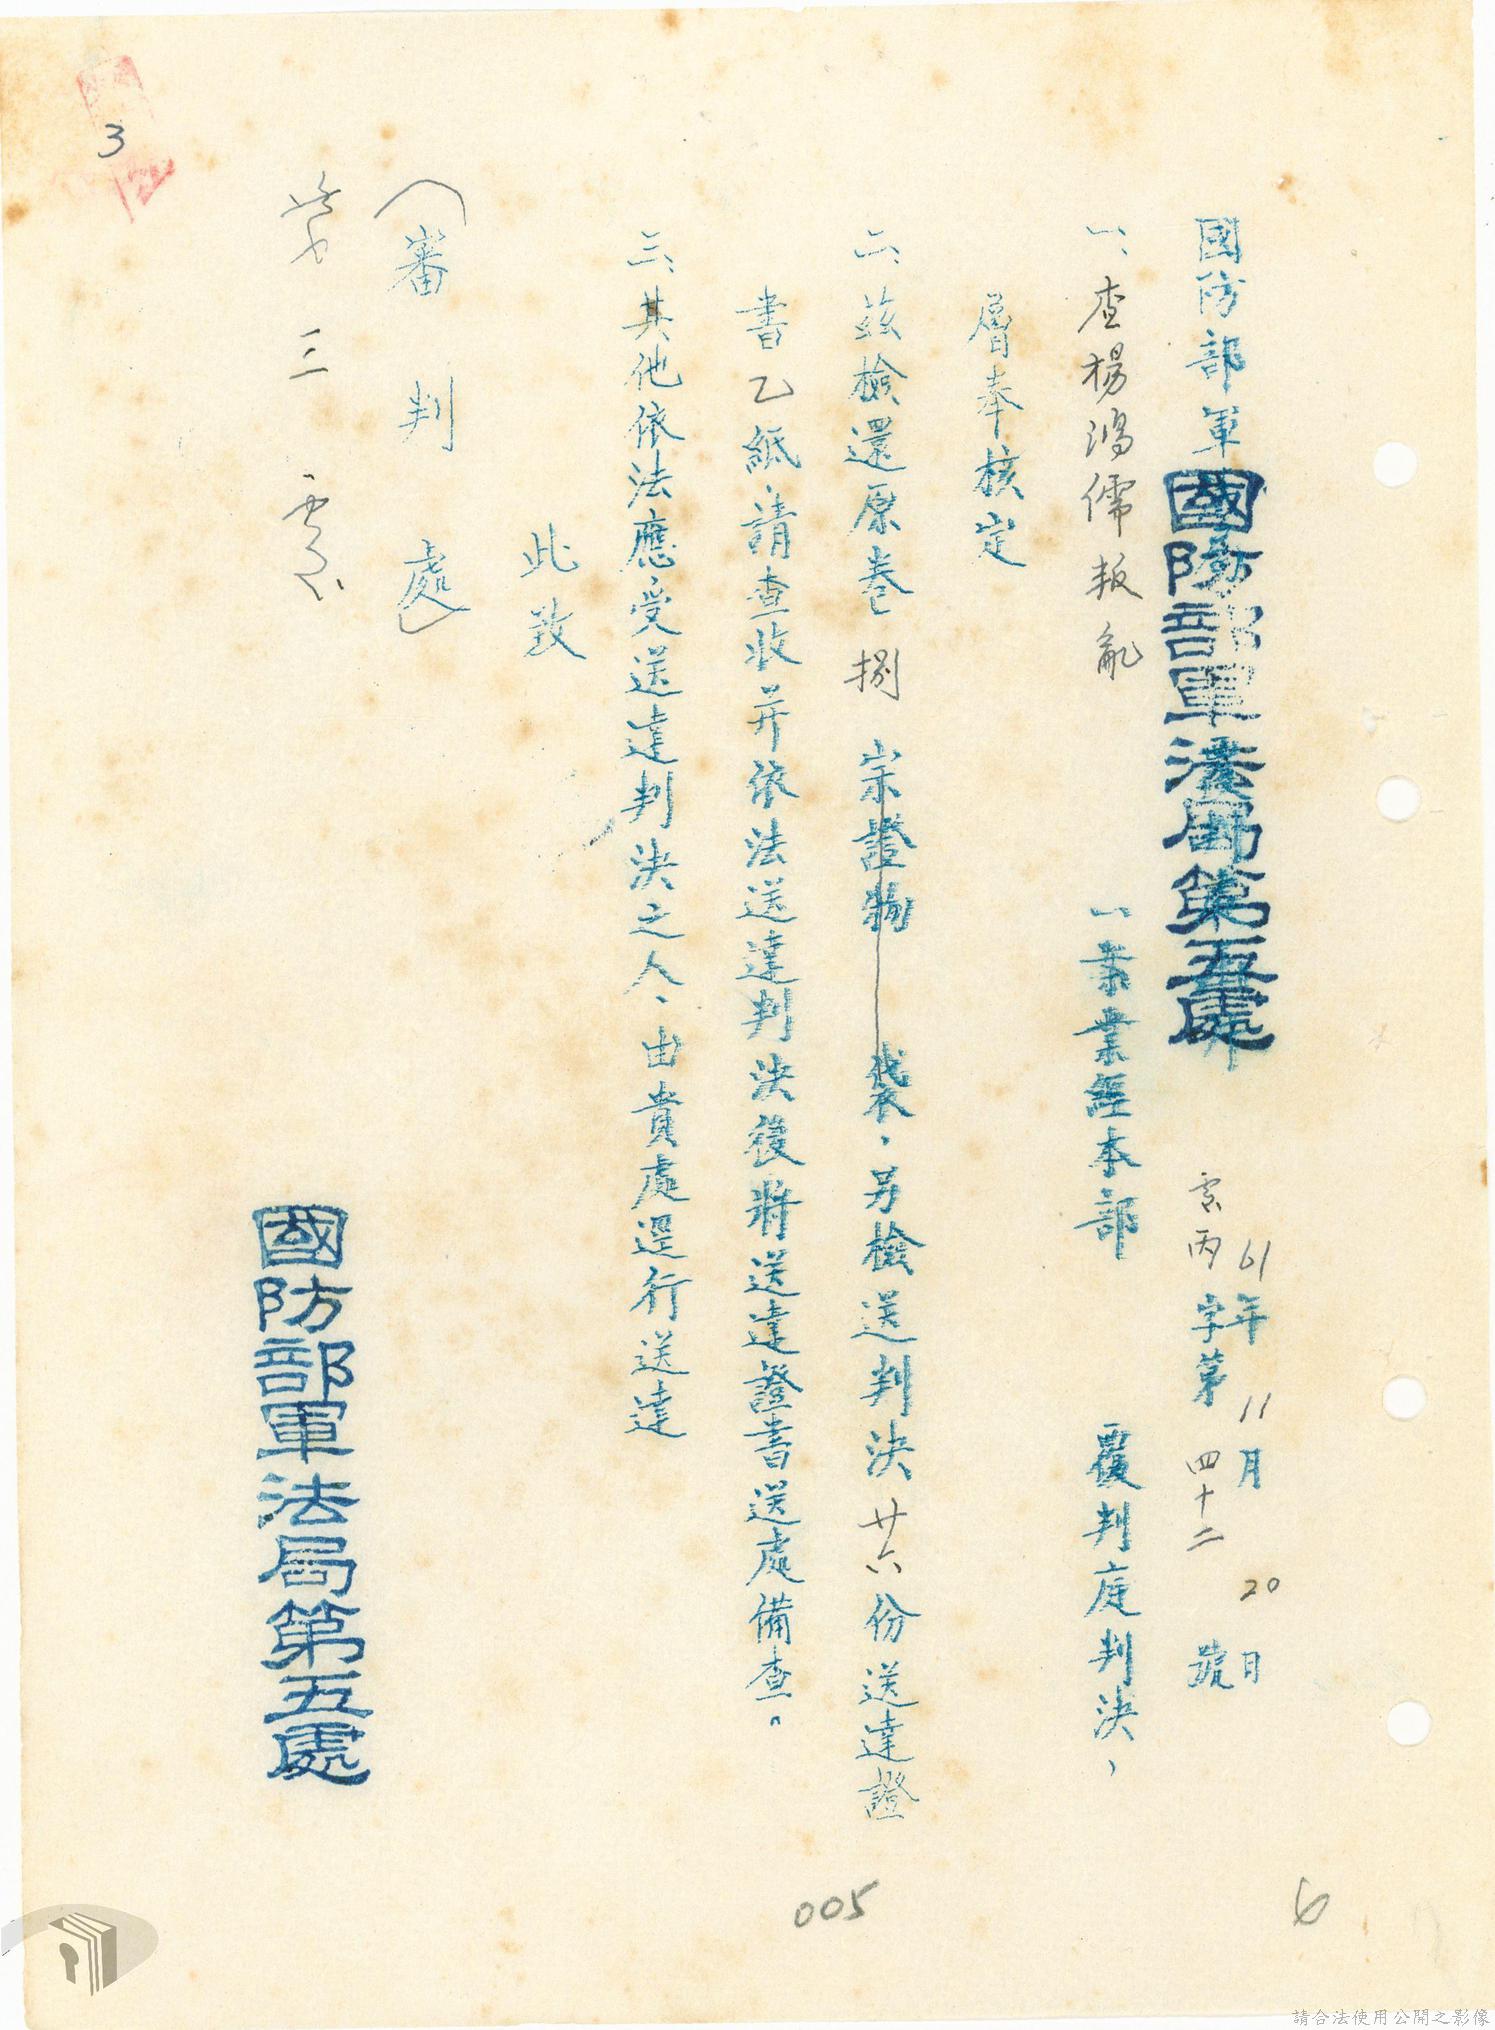 國防部軍
國防部軍法局第五處
61年11月20日
字第四十二號
一、查楊鴻儒叛亂一案業經本部覆判庭判決,
層奉核定
二、茲檢還原卷捌宗證物袋,另檢送判決廿六份送達證
書乙紙,請查收并依法送達判決後將送達證書送處備查。
三、其他依法應受送達判決之人,由貴處逕行送達
此致
(審判處)
國防部軍法局第五處
3
005
6
請合法使用公開之影像